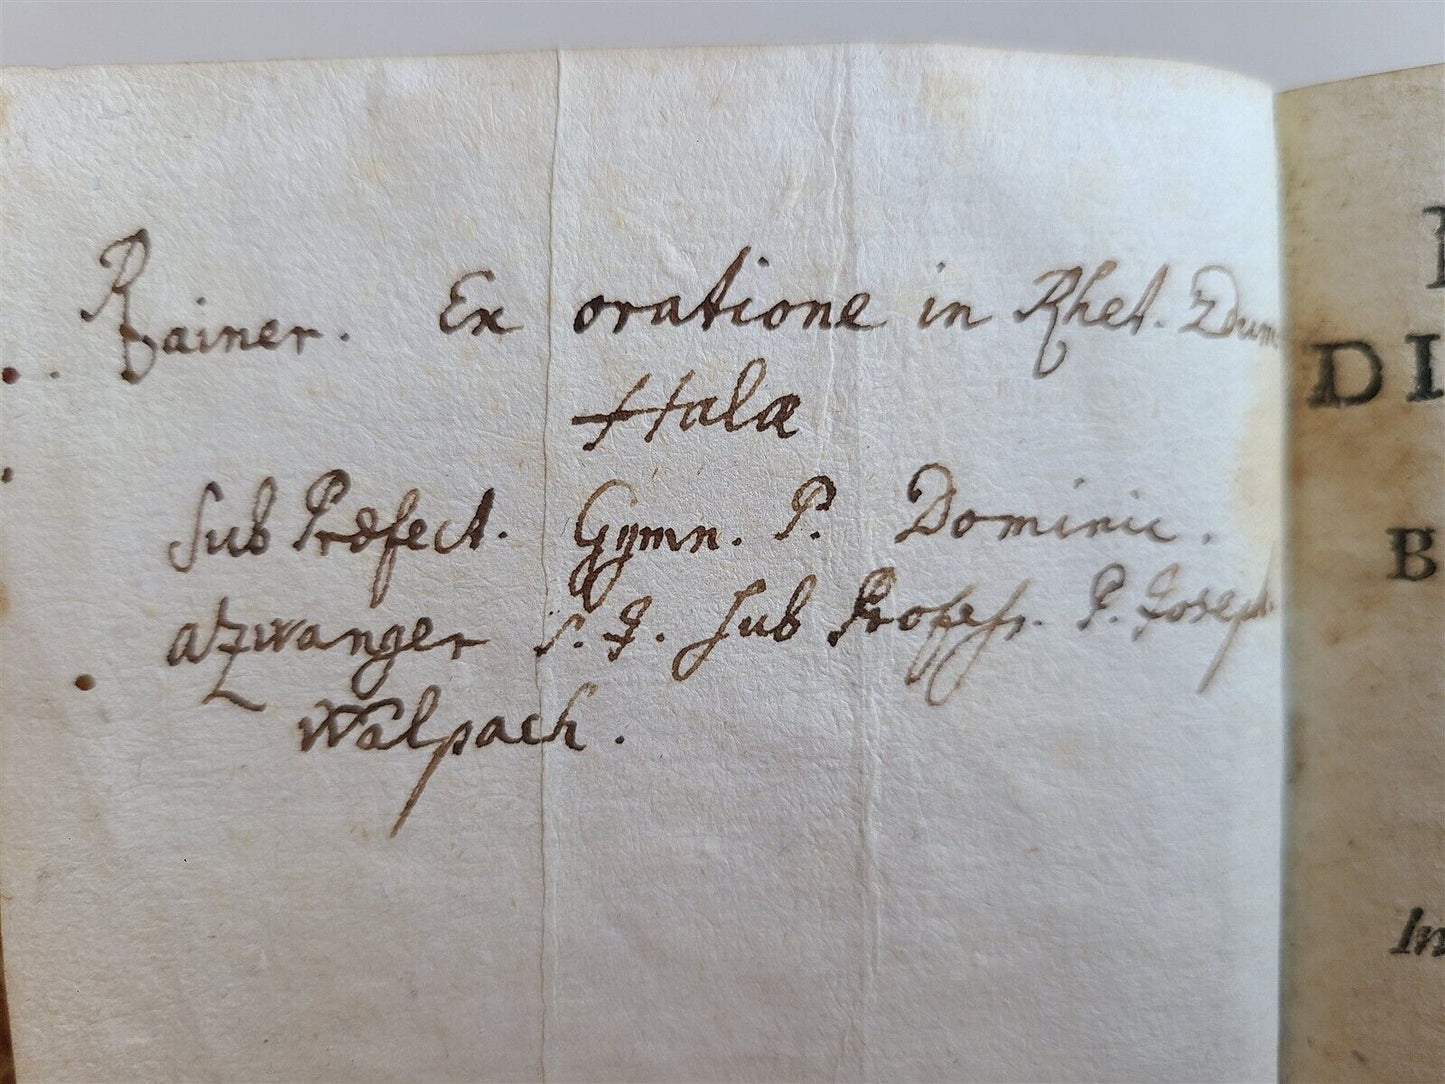 Rainer. Ex oratione in Rhet. 2dum
Halæ
sub Præfect. Gymn. P. Dominic.
azwanger S. J. sub Profess. P. Joseph.
Walpach.
DI
B
In